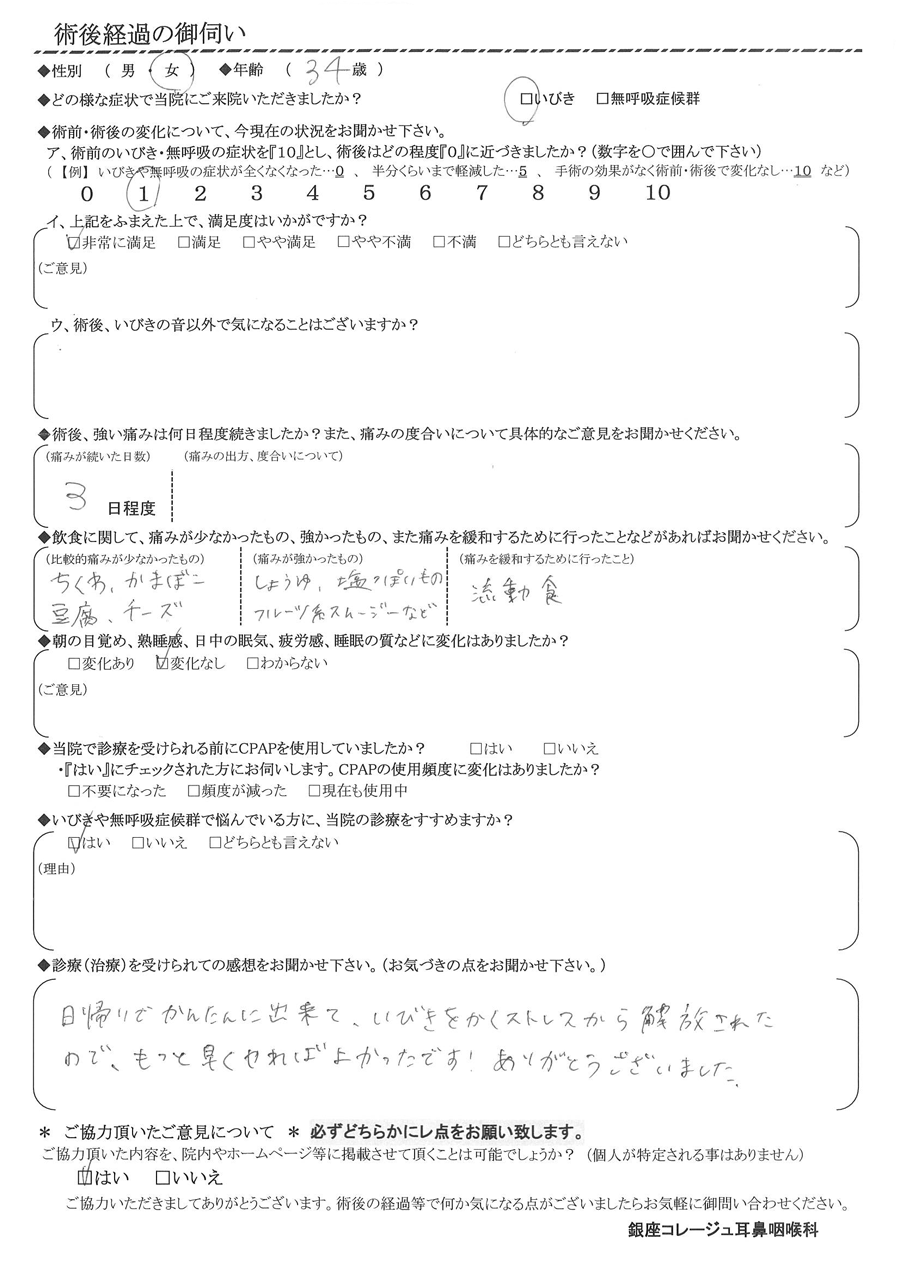 術後経過の御伺い
◆性別 （ 男 ・ 女 ） ◆年齢 （ 34歳 ）
◆どの様な症状で当院にご来院いただきましたか？ □いびき □無呼吸症候群
◆術前・術後の変化について、今現在の状況をお聞かせ下さい。
ア、術前のいびき・無呼吸の症状を『10』とし、術後はどの程度『0』に近づきましたか？（数字を〇で囲んで下さい）
（ 【例】 いびきや無呼吸の症状が全くなくなった…0 、 半分くらいまで軽減した…5 、 手術の効果がなく術前・術後で変化なし…10 など）
0 1 2 3 4 5 6 7 8 9 10
イ、上記をふまえた上で、満足度はいかがですか？
☑非常に満足 □満足 □やや満足 □やや不満 □不満 □どちらとも言えない
（ご意見）
ウ、術後、いびきの音以外で気になることはございますか？
◆術後、強い痛みは何日程度続きましたか？また、痛みの度合いについて具体的なご意見をお聞かせください。
（痛みが続いた日数） （痛みの出方、度合いについて）
3 日程度
◆飲食に関して、痛みが少なかったもの、強かったもの、また痛みを緩和するために行ったことなどがあればお聞かせください。
（比較的痛みが少なかったもの） （痛みが強かったもの） （痛みを緩和するために行ったこと）
ちくわ、かまぼこ しょうゆ、塩っぽいもの 流動食
豆腐、チーズ フルーツ系スムージーなど
◆朝の目覚め、熟睡感、日中の眠気、疲労感、睡眠の質などに変化はありましたか？
□変化あり ☑変化なし □わからない
（ご意見）
◆当院で診療を受けられる前にCPAPを使用していましたか？ □はい □いいえ
・『はい』にチェックされた方にお伺いします。CPAPの使用頻度に変化はありましたか？
□不要になった □頻度が減った □現在も使用中
◆いびきや無呼吸症候群で悩んでいる方に、当院の診療をすすめますか？
☑はい □いいえ □どちらとも言えない
（理由）
◆診療（治療）を受けられての感想をお聞かせ下さい。（お気づきの点をお聞かせ下さい。）
日帰りでかんたんに出来て、いびきをかくストレスから解放された
ので、もっと早くやればよかったです！ありがとうございました。
＊ ご協力頂いたご意見について ＊ 必ずどちらかにレ点をお願い致します。
ご協力頂いた内容を、院内やホームページ等に掲載させて頂くことは可能でしょうか？ （個人が特定される事はありません）
☑はい □いいえ
ご協力いただきましてありがとうございます。術後の経過等で何か気になる点がございましたらお気軽に御問い合わせください。
銀座コレージュ耳鼻咽喉科